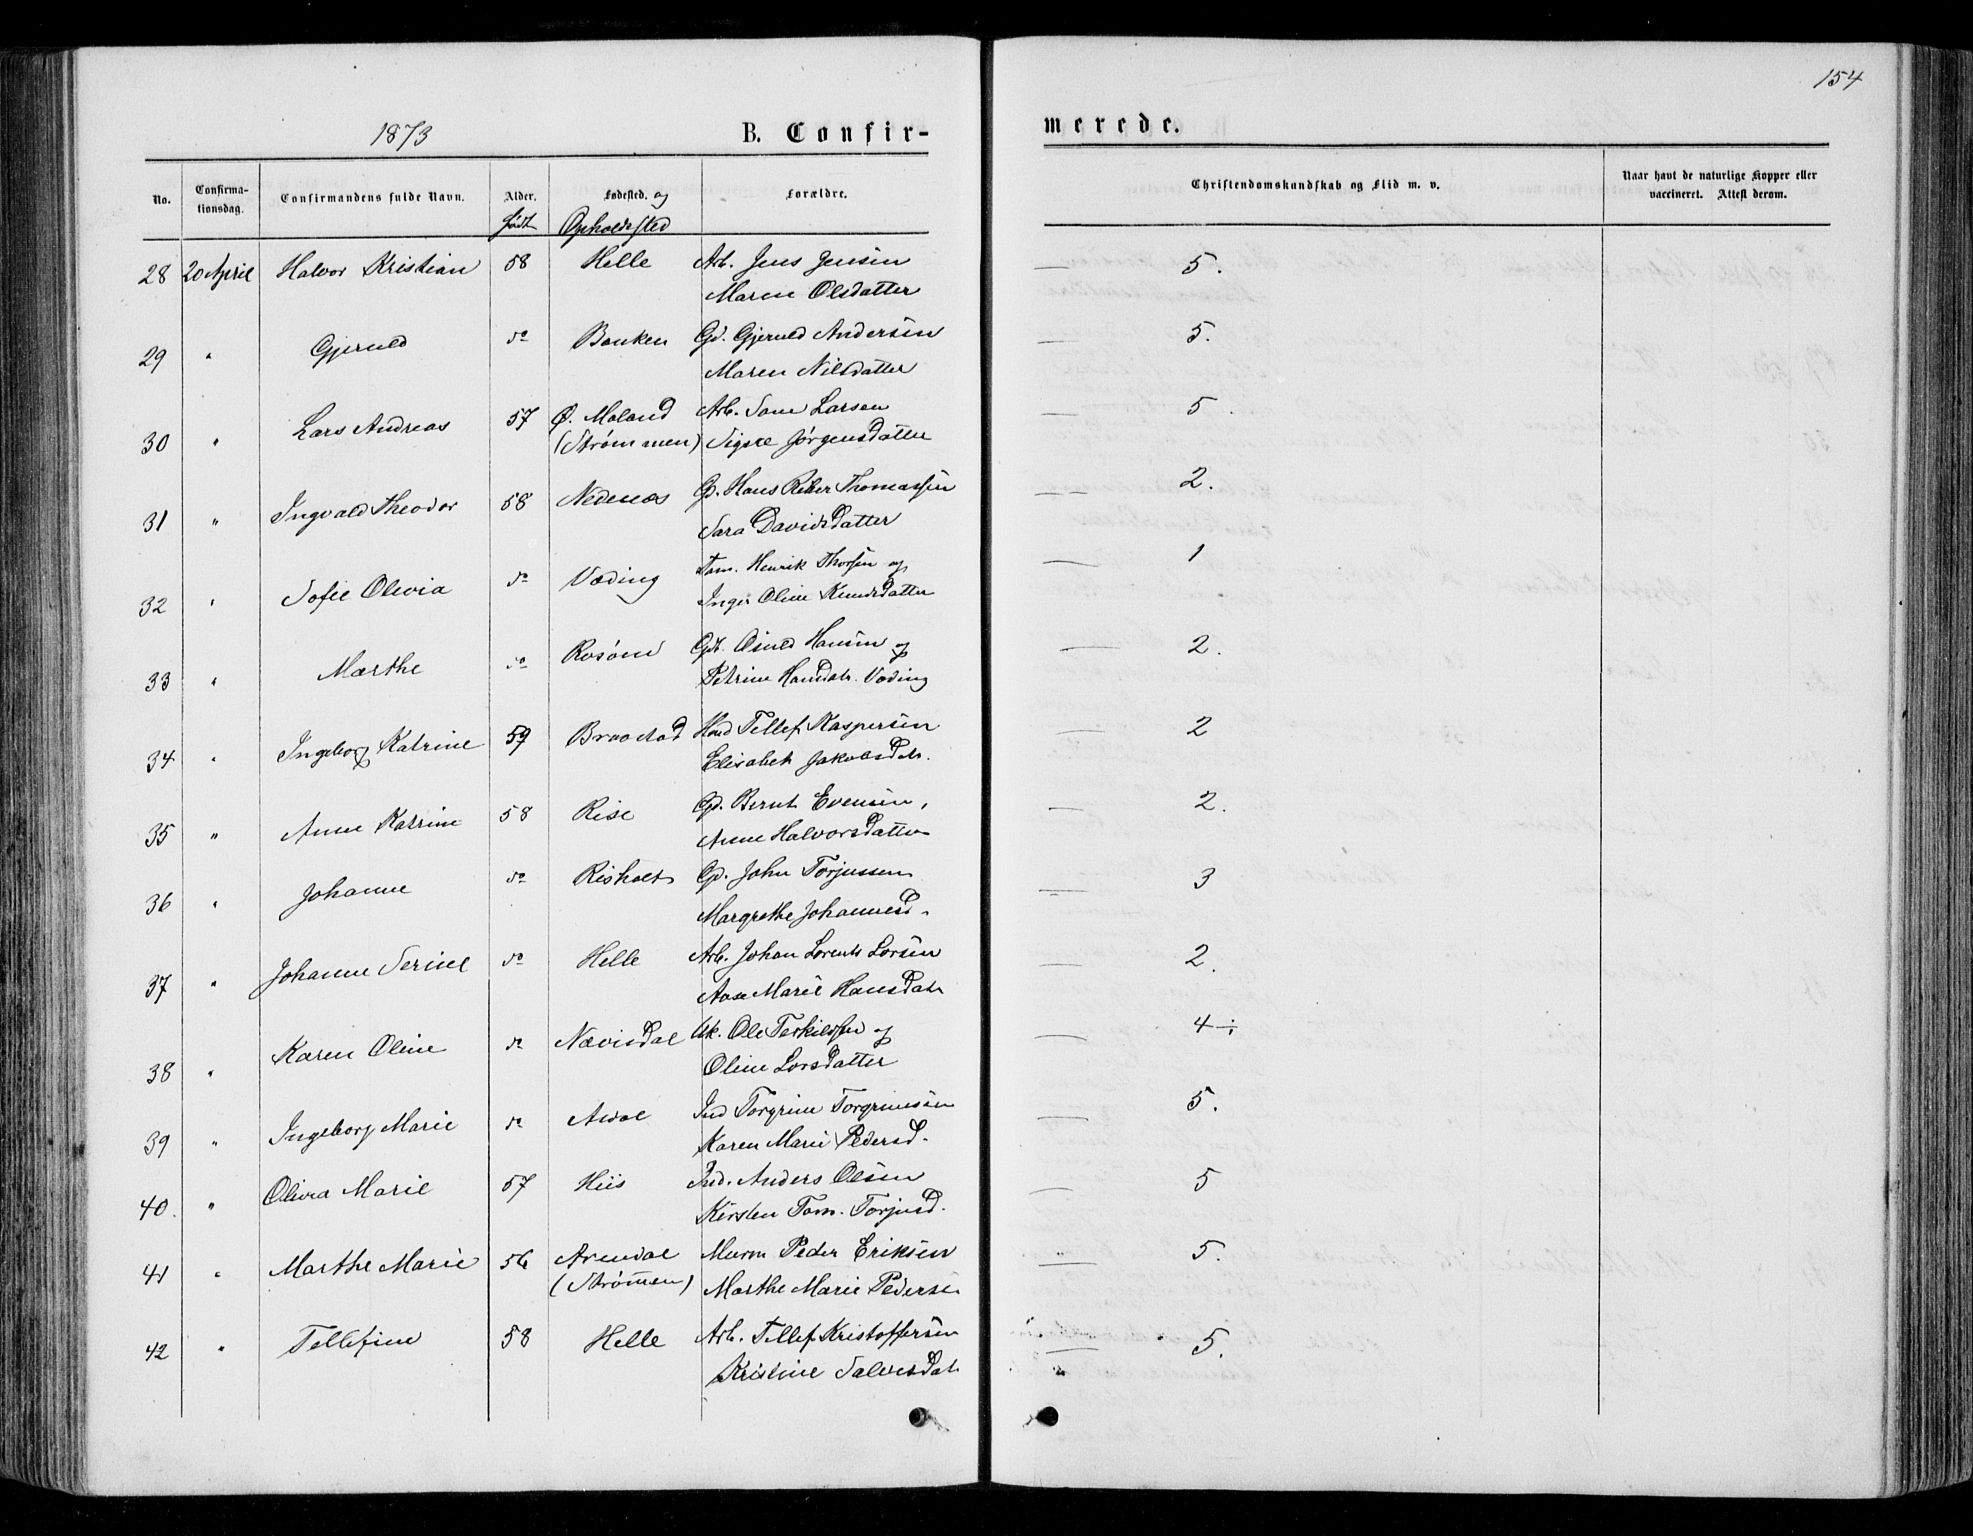 154
1873 B. Confir- merede.
No. Confirma- tionsdag. Confirmandens fulde Navn. Alder. Fødested. og Forældre. Christendomskundskab og Flid m. v. Naar havt de naturlige Kopper eller vaccineret. Attest derom.
født Opholdssted
28 20 April Halvor Kristian 58 Helle Arb. Jens Jensen — 5.
Maren Olsdatter
29 " Gjeruld do Bouken Gd. Gjeruld Andersen — 5.
Maren Nilsdatter
30 " Lars Andreas 57 Ø. Moland Arb. Lars Larsen — 5.
(Strømmen) Signe Jørgensdatter
31 " Ingvald Theodor 58 Nedenæs Gd. Hans Reber Thomassen — 2.
Sara Davidsdatter
32 " Sofie Olivia do Væding Tøm. Henrik Thorsen og — 1
Inger Oline Knudsdatter
33 " Marthe do Rosøen Gdb. Osuld Hansen og — 2.
Petrine Hansdatr. Væding
34 " Ingeborg Katrine 59 Braastad Hmd Tellef Kaspersen — 2
Elisabet Jakobsdatr.
35 " Anne Katrine 58 Rise Gd. Bernt Evensen, — 2.
Anne Halvorsdatter
36 " Johanne do Risholt Gd. John Torjussen — 3
Margrethe Johannesd.
37 " Johanne Serine do Helle Arb. Johan Lorents Larsen — 2.
Aase Marie Hansdatr
38 " Karen Oline do Nævisdal Uk. Ole Terkildsen og — 4 ÷
Oline Larsdatter
39 " Ingeborg Marie do Asdal Ind Torgrim Torgrimsen — 5.
Karen Marie Pedersd.
40. " Olivia Marie 57 Hiis Ind. Anders Olsen — 5
Kirsten Tom. Torjusd.
41 " Marthe Marie 56 Arendal Murm Peder Eriksen — 5.
(Strømen) Marthe Marie Peders
42 " Tellefine 58 Helle Arb. Tellef Kristoffersen — 5.
Kristine Salvesdatr